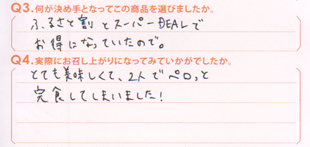 Q3.何が決め手となってこの商品を選びましたか。
ふるさと割とスーパーDEALで
お得になっていたので。
Q4.実際にお召し上がりになってみていかがでしたか。
とても美味しくて、2人でペロッと
完食してしまいました!